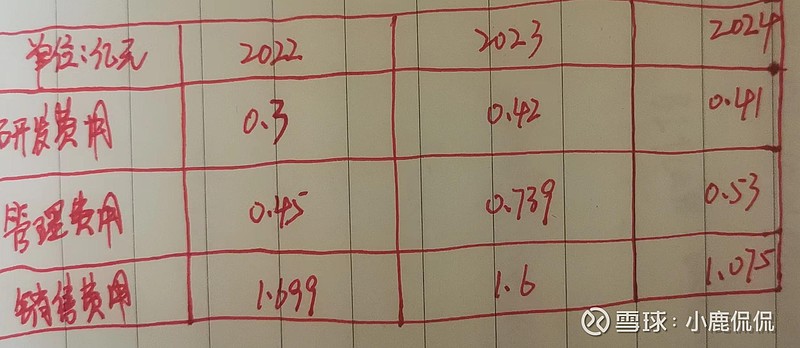 单位:亿元 2022 2023 2024
研发费用 0.3 0.42 0.41
管理费用 0.45 0.739 0.53
销售费用 1.699 1.6 1.075
雪球:小鹿侃侃